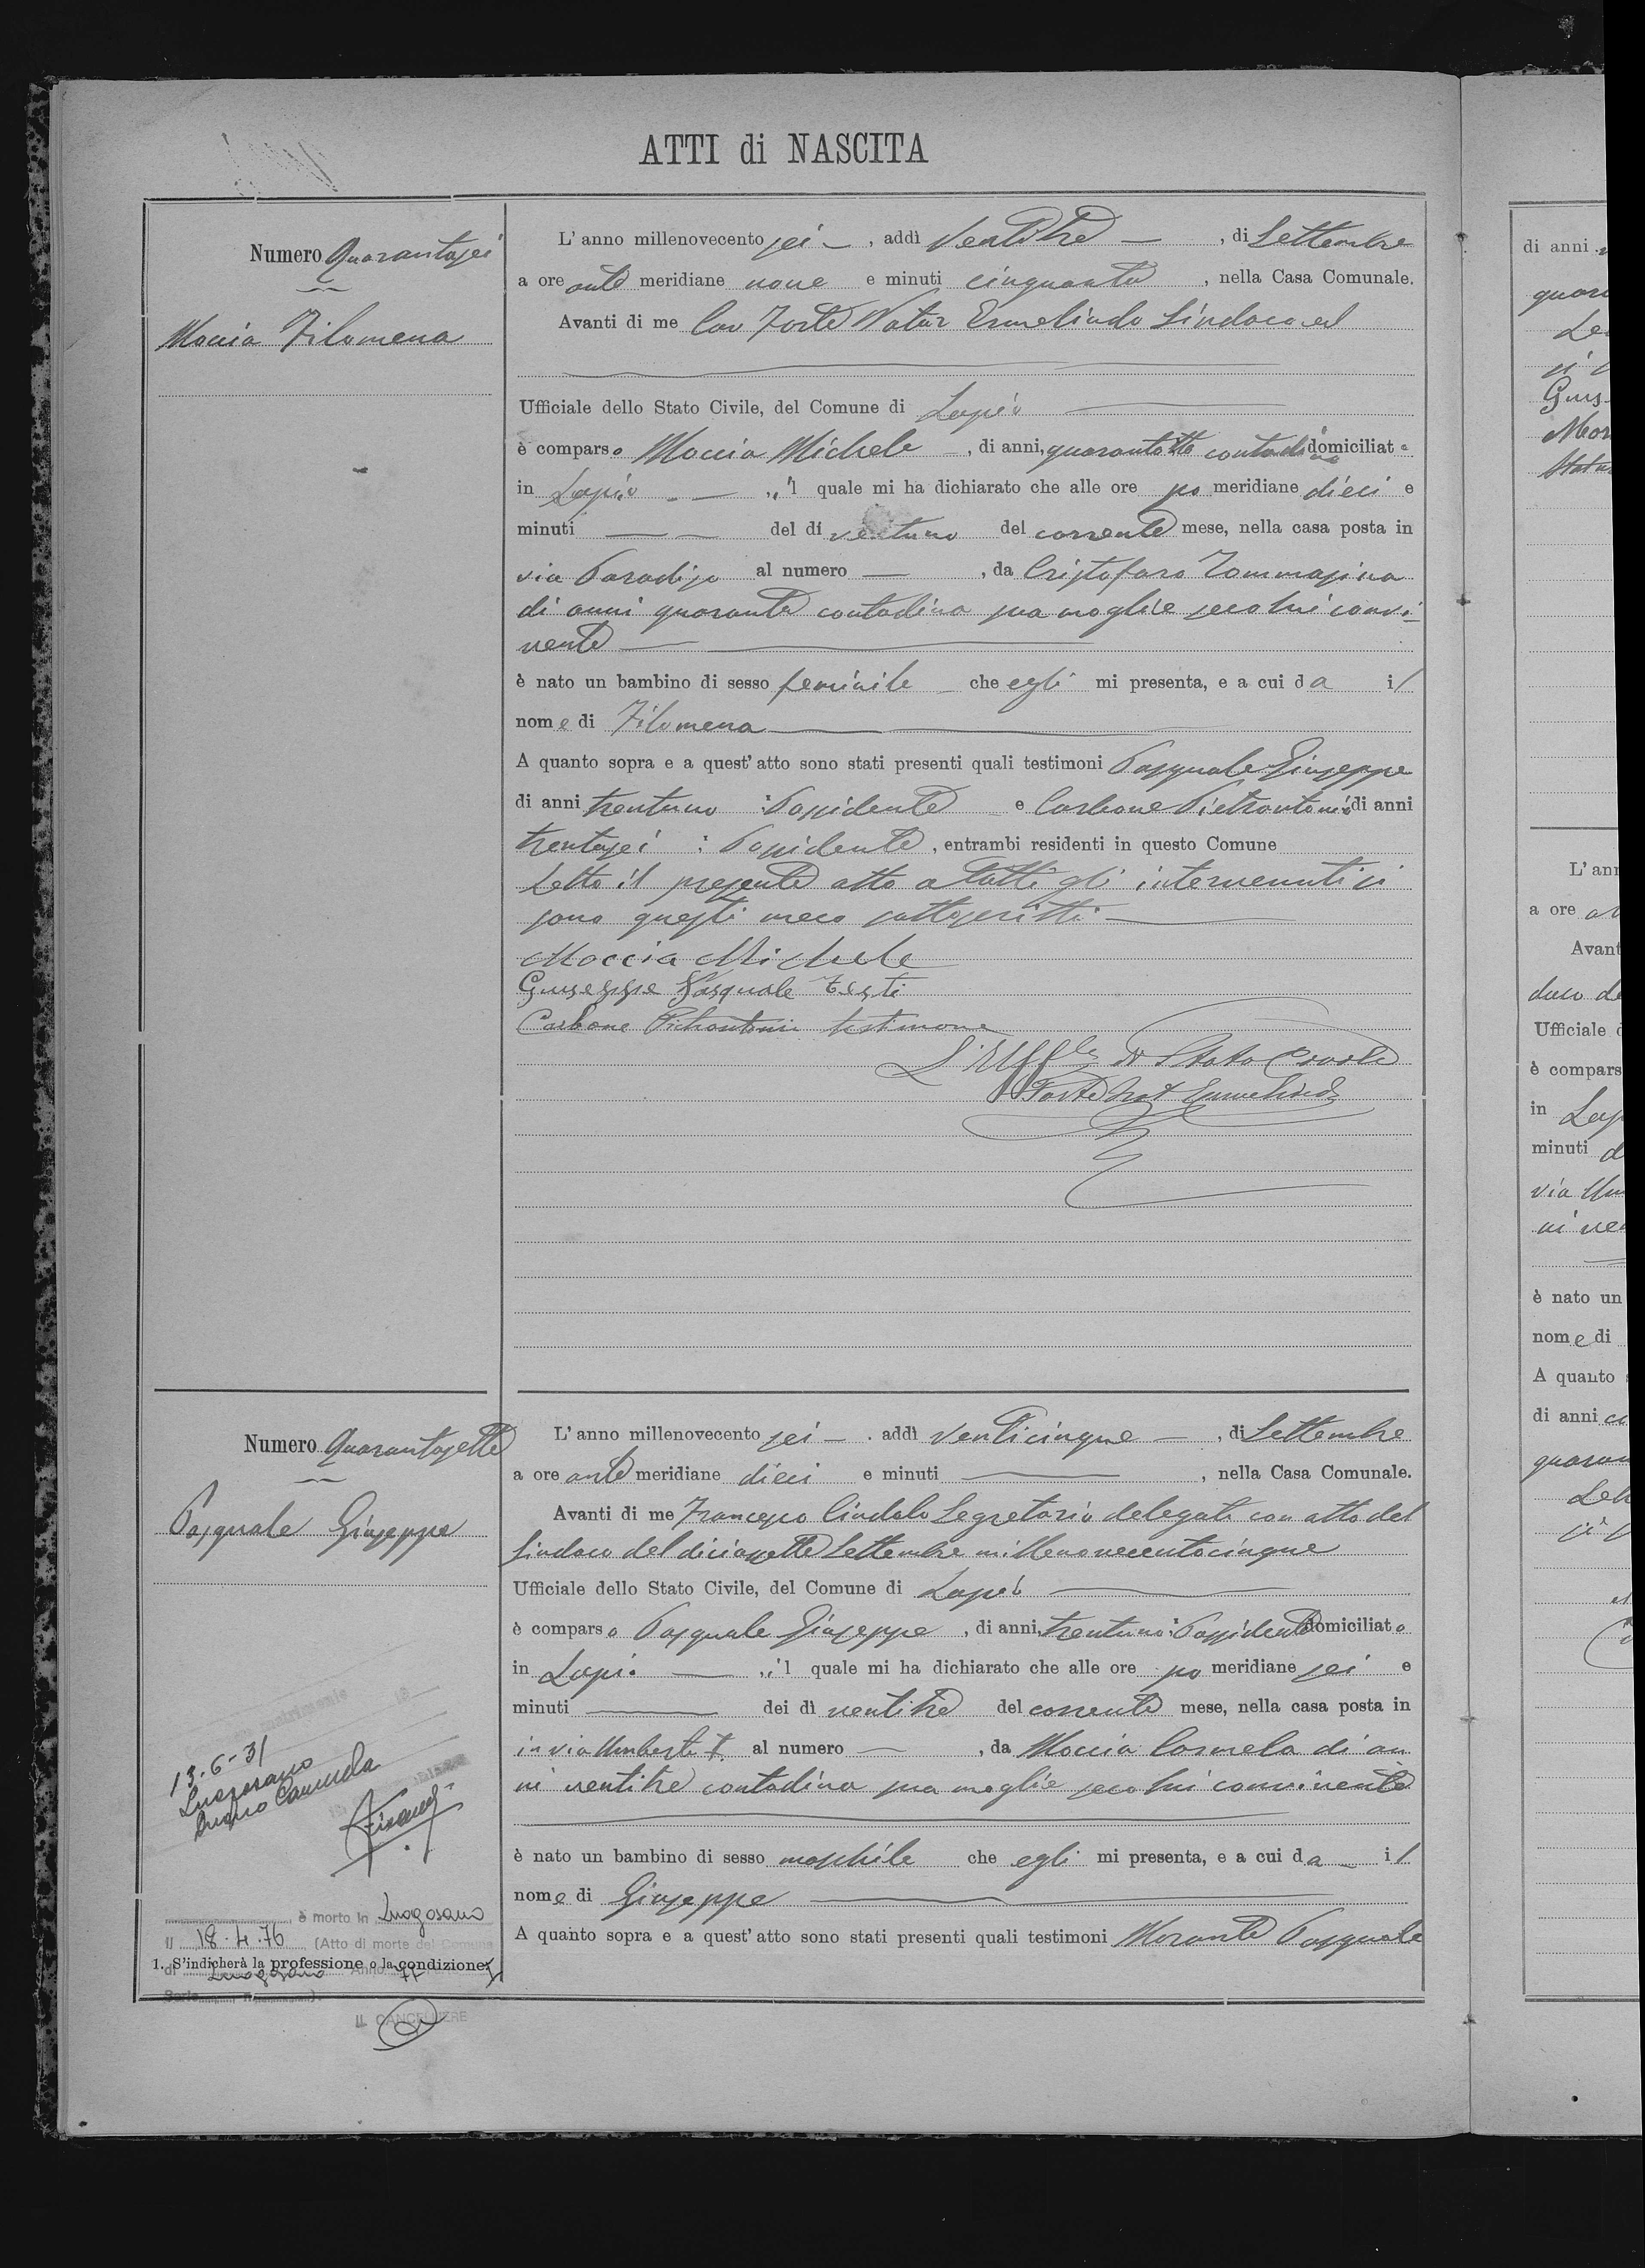 ATTI di NASCITA
Numero Quarantasei
Moccia Filomena
L' anno millenovecento sei — , addì Ventitre — , di Settembre
a ore ante meridiane nove e minuti cinquanta , nella Casa Comunale.
Avanti di me Cav Forte Notar Ermelindo Sindaco ed
Ufficiale dello Stato Civile, del Comune di Lapio
è comparso Moccia Michele — , di anni, quarantotto contadino domiciliato
in Lapio — , il quale mi ha dichiarato che alle ore po meridiane dieci e
minuti — — del dì ventuno del corrente mese, nella casa posta in
via Paradiso al numero — , da Cristofaro Tommasina
di anni quaranta contadina sua moglie seco lui convi-
vente
è nato un bambino di sesso feminile che egli mi presenta, e a cui da il
nome di Filomena
A quanto sopra e a quest' atto sono stati presenti quali testimoni Pasquale Giuseppe
di anni trentuno : Possidente e Carbone Pietrantonio di anni
trentasei : Possidente , entrambi residenti in questo Comune
Letto il presente atto a tutti gli intervenuti si
sono questi meco sottoscritti
Moccia Michele
Giuseppe Pasquale testi
Carbone Pietrantonio testimone
L'Uffle di Stato Civile
Forte Not Ermelindo
Numero Quarantasette
Pasquale Giuseppe
L' anno millenovecento sei — . addì venticinque — , di Settembre
a ore ante meridiane dieci e minuti — , nella Casa Comunale.
Avanti di me Francesco Cindolo Segretario delegato con atto del
Sindaco del diciassette Settembre millenovecentocinque
Ufficiale dello Stato Civile, del Comune di Lapio
è comparso Pasquale Giuseppe , di anni, trentuno : Possidente domiciliato
in Lapio — , il quale mi ha dichiarato che alle ore po meridiane sei e
minuti — dei dì ventitre del corrente mese, nella casa posta in
in via Umberto I. al numero — , da Moccia Carmela di an
ni ventitre contadina sua moglie seco lui convivente
è nato un bambino di sesso maschile che egli mi presenta, e a cui da — il
nome di Giuseppe
A quanto sopra e a quest' atto sono stati presenti quali testimoni Morante Pasquale
13-6-31
Luogosano
Carmela
è morto in Luogosano
Il 18.4.76 (Atto di morte del Comune
di Luogosano Anno 76
1. S'indicherà la professione o la condizione.
Serie
IL CANCELLIERE
di anni
Ufficiale
è compars
in Lap
minuti
via Um
è nato un
nome di
A quanto
di anni